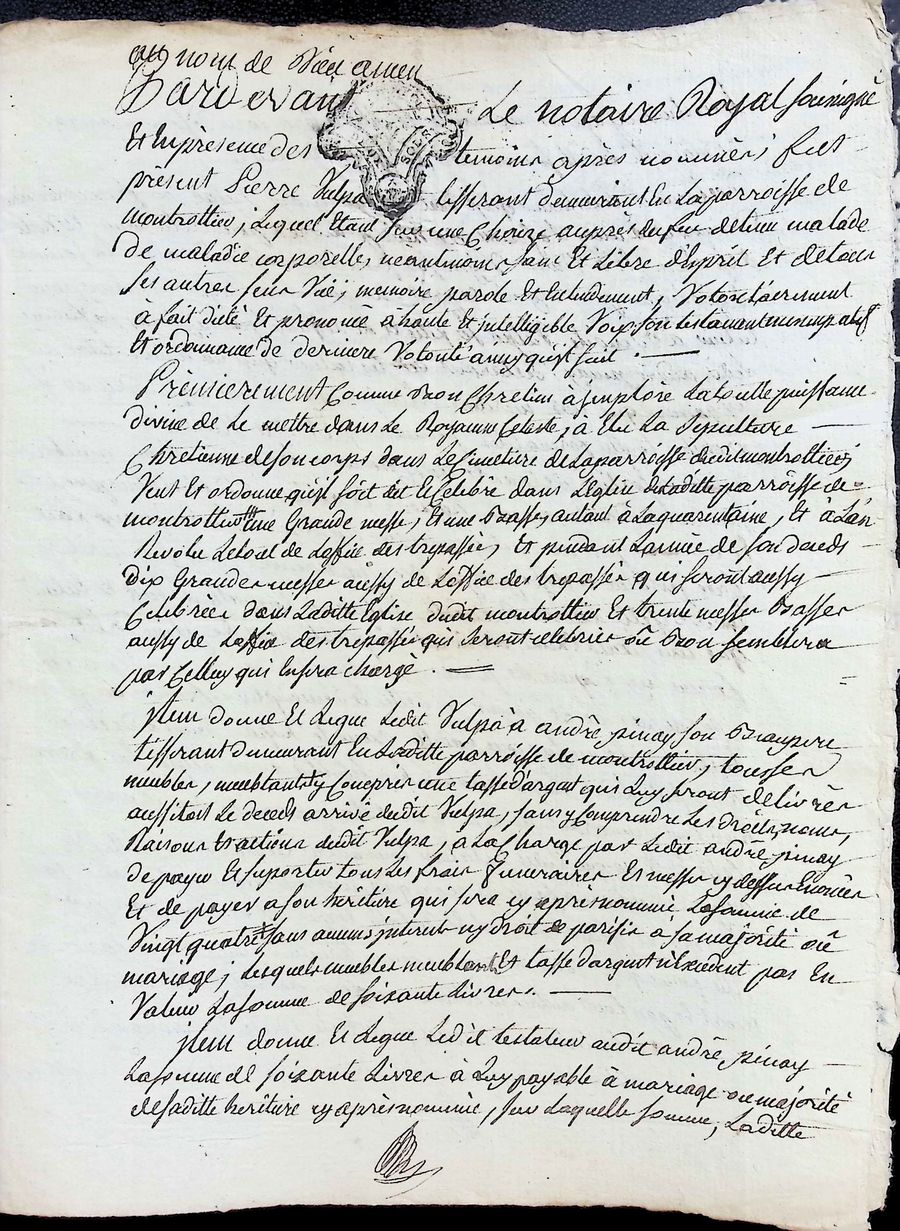 au nom de Dieu amen
Pardevant Le notaire Royal soussigné
Et En présence des temoins après nommés fut
présent Pierre Vulpa tisserant demeurant En La parroisse de
montrottier, Lequel Etant sur une Chaize auprès du feu detenu malade
de maladie corporelle, neantmoins sain Et Libre d'Esprit Et de tous
ses autres sens Vüe, memoire parole Et Entendement, Volontairement
à fait dicté Et prononcé à haute Et jntelligible Voix son testament nuncupatif
Et ordonnance de derniere Volonté ainsy qu'il suit .
Prèmierement Comme Bon Chretien à jmploré La toutte puissance
divine de Le mettre dans Le Royaume Celeste, à Elu La Sepulture
Chrètienne de son corps dans Le Cimetiere de La parroisse dudit montrottier,
Veut Et ordonne qu'il soit dit Et Celebré dans L'Eglise de Laditte parroisse de
montrottier une Grande messe, Et une Basse, autant à La quarantaine, Et à L'an
Revolu Le tout de L'office des trepassés, Et pendant L'année de son deceds
Dix Grandes messes aussy de L'office des trepassés qui seront aussy
Celebrées dans Laditte Eglise dudit montrottier Et trente messes Basses
aussy de L'office des trepassés qui seront celebrées où Bon semblera
par Celluy qui En sera chargé .
jtem donne Et Legue Ledit Vulpa à andré pinay son Beaupere
tisserant demeurant En Laditte parroisse de montrottier, tous ses
meubles, meublants y Compris une tasse d'argent qui Luy seront delivrés
aussitost Le deceds arrivé dudit Vulpa, sans y Comprendre Les droits, noms,
Raisons Et actions dudit Vulpa, à La Charge par Ledit andré pinay
de payer Et suporter tous Les frais funeraires Et messes cy dessus Enoncés
Et de payer a son hèritiere qui sera cy après nommée La somme de
Vingt quatre # sans aucuns jnterets ny droit de parisis a sa majorité ou
mariage; Lesquels meubles meublants Et tasse d'argent n'Excedent pas En
Valeur La somme de soixante Livres .
jtem donne Et Legue Ledit testateur audit andré pinay
La somme de soixante Livres à Luy payable à mariage ou majorité
de saditte hèritiere cy après nommée, sur Laquelle somme, Laditte